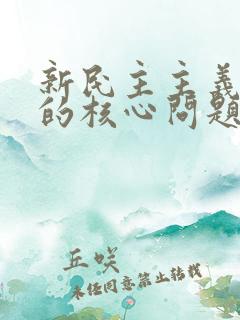 新民主主義
的核心問題
丘咲
未经同意禁止转载